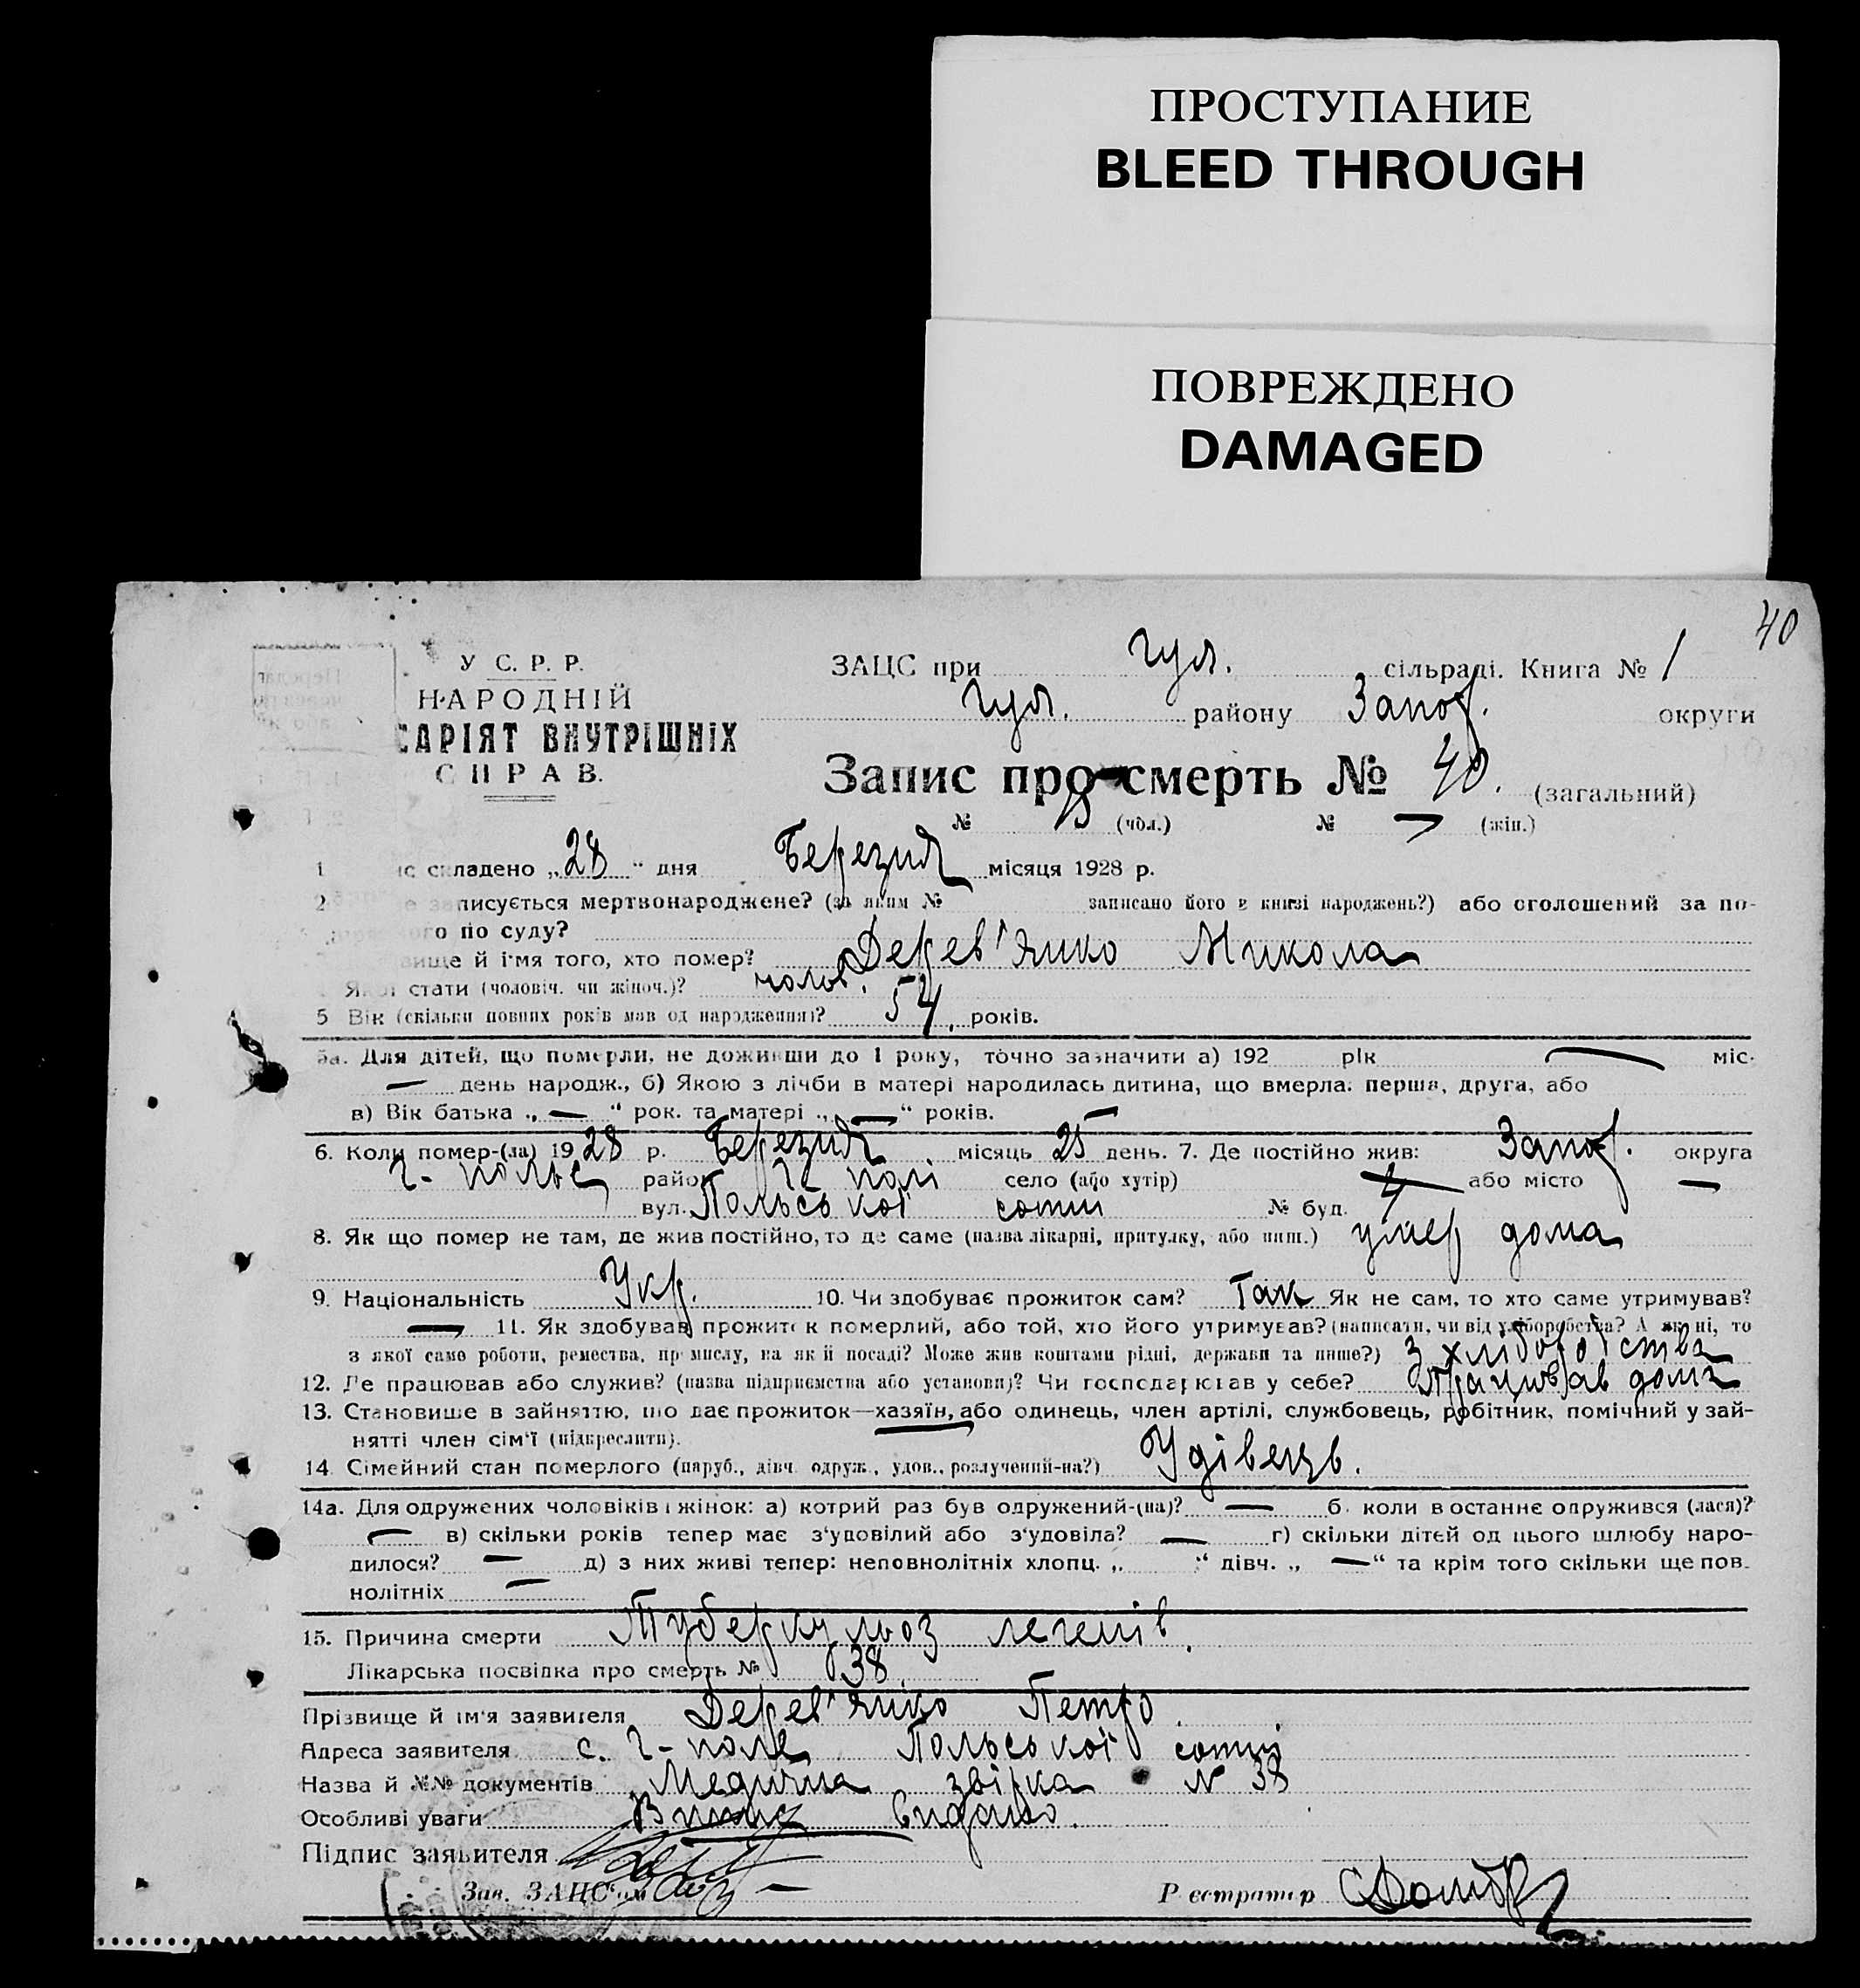 ПРОСТУПАНИЕ
BLEED THROUGH
ПОВРЕЖДЕНО
DAMAGED
40
У С. Р. Р.
НАРОДНІЙ
САРІЯТ ВНУТРІШНІХ
СПРАВ.
ЗАЦС при Гул. сільраді. Книга № 1
Гул. району Запор. округи
Запис про смерть № 40. (загальний)
№ (чол.) № — (жін.)
1 с складено „28“ дня Березня місяця 1928 р.
2 е записується мертвонароджене? (за яким № записано його в книзі народжень?) або оголошений за по-
го по суду?
вище й ім'я того, хто помер? Дерев'янко Микола
Якої стати (чоловіч. чи жіноч.)? чолов.
5 Вік (скільки повних років мав од народження)? 54. років.
5а. Для дітей, що померли, не доживши до 1 року, точно зазначити а) 192 рік — міс.
— день народж., б) Якою з лічби в матері народилась дитина, що вмерла: перша, друга, або —
в) Вік батька „—“ рок. та матері „—“ років.
6. Коли помер-(ла) 1928 р. Березня місяць 25 день. 7. Де постійно жив: Запор. округа
Г-полье район Г полі село (або хутір) — або місто —
вул. Польської сотні № буд. 4
8. Як що помер не там, де жив постійно, то де саме (назва лікарні, притулку, або инш.) умер дома
9. Національність Укр. 10. Чи здобуває прожиток сам? Так Як не сам, то хто саме утримував?
— 11. Як здобував прожиток померлий, або той, хто його утримував? (написати, чи від хліборобства? А як ні, то
з якої саме роботи, ремества, промислу, на якій посаді? Може жив коштами рідні, держави та инше?) З хліборобства
12. Де працював або служив? (назва підприємства або установи)? Чи господарював у себе? Працював дома
13. Становище в зайняттю, що дає прожиток—хазяїн, або одинець, член артілі, службовець, робітник, помічний у зай-
нятті член сім'ї (підкреслити).
14. Сімейний стан померлого (паруб., дівч. одруж., удов., розлучений-на?) Удівець.
14а. Для одружених чоловіків і жінок: а) котрий раз був одружений-(на)? — б. коли в останнє одружився (лася)?
— в) скільки років тепер має з'удовілий або з'удовіла? — г) скільки дітей од цього шлюбу наро-
дилося? — д) з них живі тепер: неповнолітніх хлопц. „ “ дівч. „—“ та крім того скільки ще пов-
нолітніх —
15. Причина смерти Туберкульоз легенів.
Лікарська посвідка про смерть № 38
Прізвище й ім'я заявителя Дерев'янко Петро.
Адреса заявителя с. Г-поле Польської сотні
Назва й №№ документів Медична звірка № 38
Особливі уваги Видано.
Підпис заявителя
Зав. ЗАЦС'ом Реєстратор